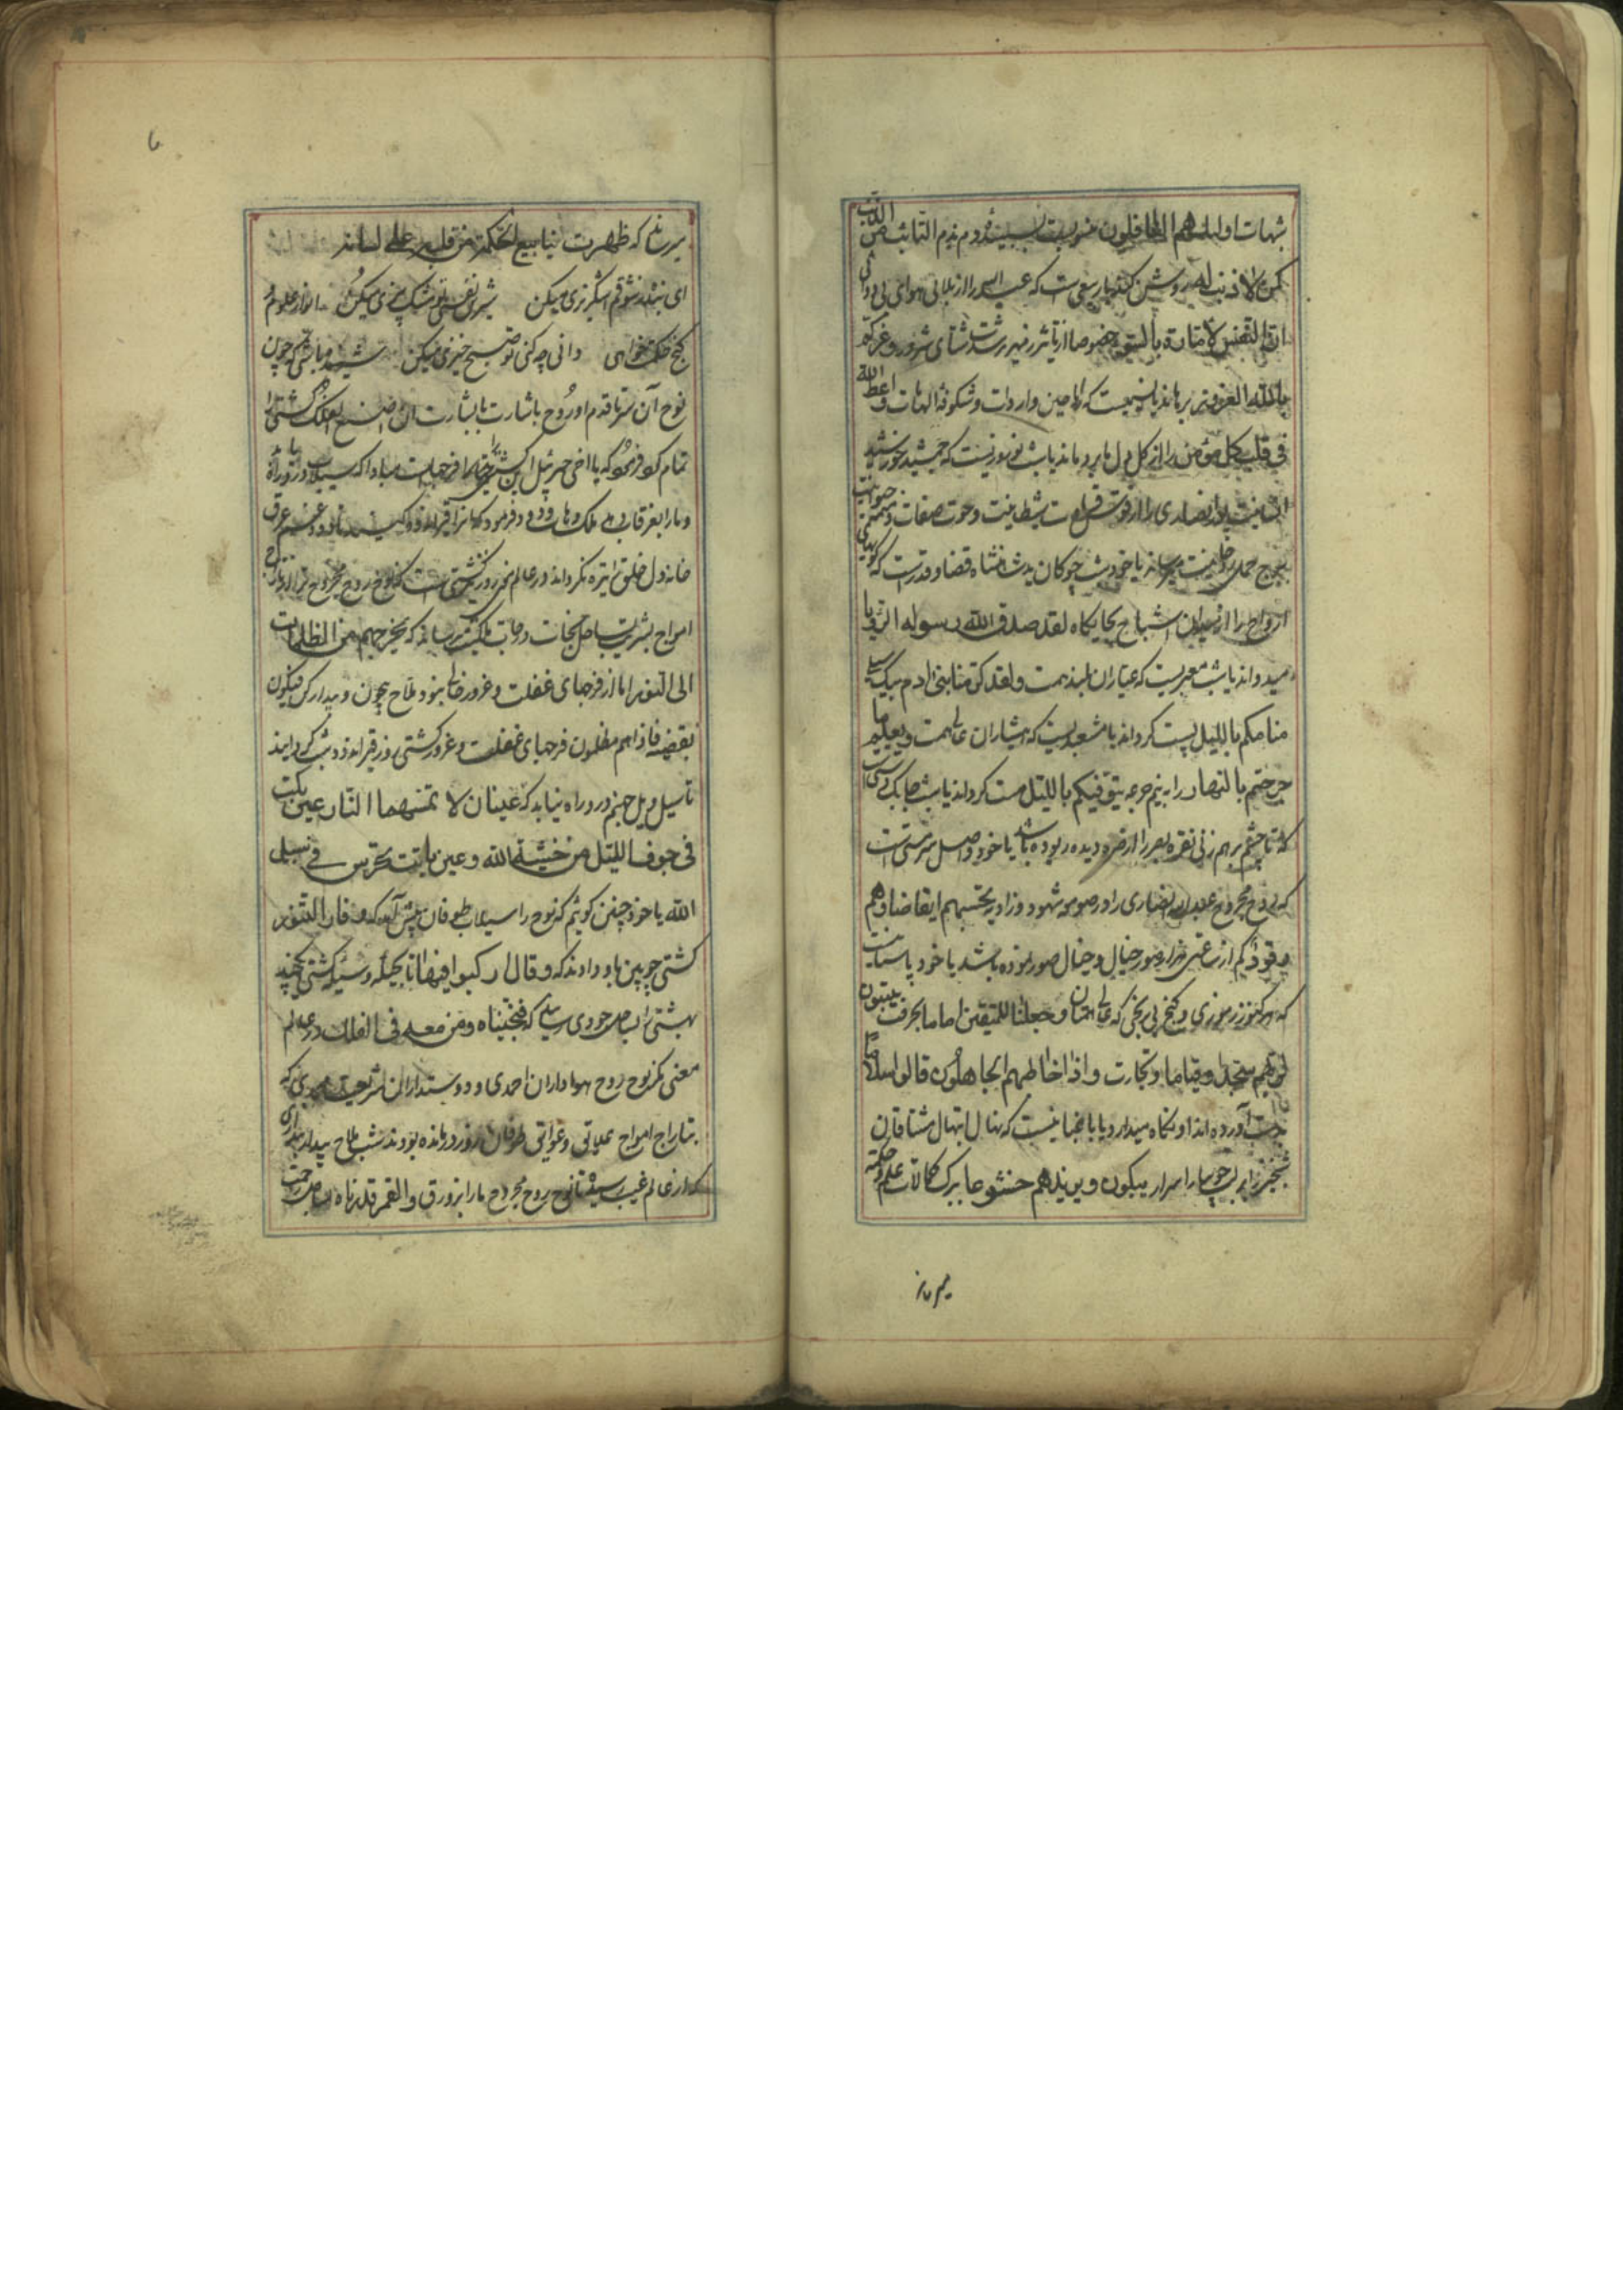 شبهات اولئک هم الغافلون منوبیست بسیند دم ندم التائب من الذنب
کمن لا ذنب له روشن کند یا ربیعی است که عبد الله را از بلای هوای بی دولتی
ان النفس لامارة بالسوء خصوصا از تاثیر زمهریر شدت شتای شرور و غرکم
بالله الغرور برهاند یا نسیمیست که ریاحین واردات و شکوفه الهامات واعظ الله
فی قلب کل مؤمن را از کل دل ما برد ماند یا شب نوروزیست که جمشید خورشید
انسانیت انصاری را از قوس و حوت صفات
ببرج حمل میرساند یا خود شب چوکان بدست شاه قضا و قدرست که گویهای
ارواح را از میدان اشباح بجایکاه لقد صدق الله رسوله الرؤیا
میدواند یا شب معبریست که عیاران بلند همت ولقد کرمنا بنی ادم بیک سیلی
منامکم باللیل پست کرداند یا مشعبدیست که هشیاران عالی همت و یعلم ما
جرحتم بالنهار را به نیم جرعه یتوفیکم باللیل مست کرداند یا شب چابک دستیست
که تا چشم بر هم زنی نقره بصر را از صره دیده ربوده باشد یا خود واصل سرمستیست
که روح مجروح عبدالله انصاری را در صومعه شهود و زاویه تحسبهم ایقاظا وهم
رقود یکم از ساعتی هزار صور خیال و خیال صور نموده باشد یا خود پاسبانیست
که هر کنوز رموزی و کنج بی رنجی که عالی همتان وجعلنا للمتقین اماما بحرفت یبیتون
لربهم سجدا وقیاما و تجارت واذا خاطبهم الجاهلون قالوا سلاما
بدست آورده اند او نکاه میدارد یا باغبانیست که نهال ابتهال مشتاقان
شبخیز را بر لب جویبار اسرار یبکون ویزیدهم خشوعا ببرک کمالات علم و حکمة
میرساند
میرساند که ظهرت ینابیع الحکمة من قلبه علی لسانه
ای بنده ز شوقم اشکریزی میکن شیری نفسی تو مشک بیزی میکن انوار علوم
کنج حکمت خواهی دانی چه کنی تو صبح خیزی میکن شنیده باشی که چون
نوح آن سر تا قدم او روح باشارت با بشارت ان اصنع الفلک کشتی را
تمام کرد فرمود که یا اخی جبرئیل این کشتی را فرجهاست مبادا که سیلاب در او راه یابد
و ما را بغرقاب بی هلاک فرود برد فرمود که آنرا
خانه دل خلق تیره نکرداند در عالم نیز روز کشتی است که نوح روح مجروح ترا از تاراج
امواج بشریت بساحل نجات و درجات ملکیت میرساند که یخرجهم من الظلمات
الی النور اما از فرجهای غفلت و غرور خالی نبود ملاح بیچون و بیدار کن فیکون
بقضیه فاذا هم مظلمون فرجهای غفلت و غرور کشتی روز قیراندود شب کردانید
تا سیل ویل جهنم در و راه نیابد که عینان لا تمسهما النار عین بکت
فی جوف اللیل من خشیة الله وعین باتت تحرس فی سبیل
الله یا خود چنین کوئیم که نوح را سیلاب طوفان پیش آمد که و فار التنور
کشتی چوبین باو دادند که وقال ارکبوا فیها تا بحیله و سیله کشتی چند
بهشتی را بساحل جودی رسانید که فنجیناه ومن معه فی الفلک در عالم
معنی نکر نوح روح هواداران احمدی و دوستداران شریعت محمدی که
بتاراج امواج علائق و عوائق طوفان روز درمانده بودند شب ملاح بیدار
که از عالم غیب رسید تا نوح روح مجروح ما را بزورق والقمر قدرناه بساحل رحمت